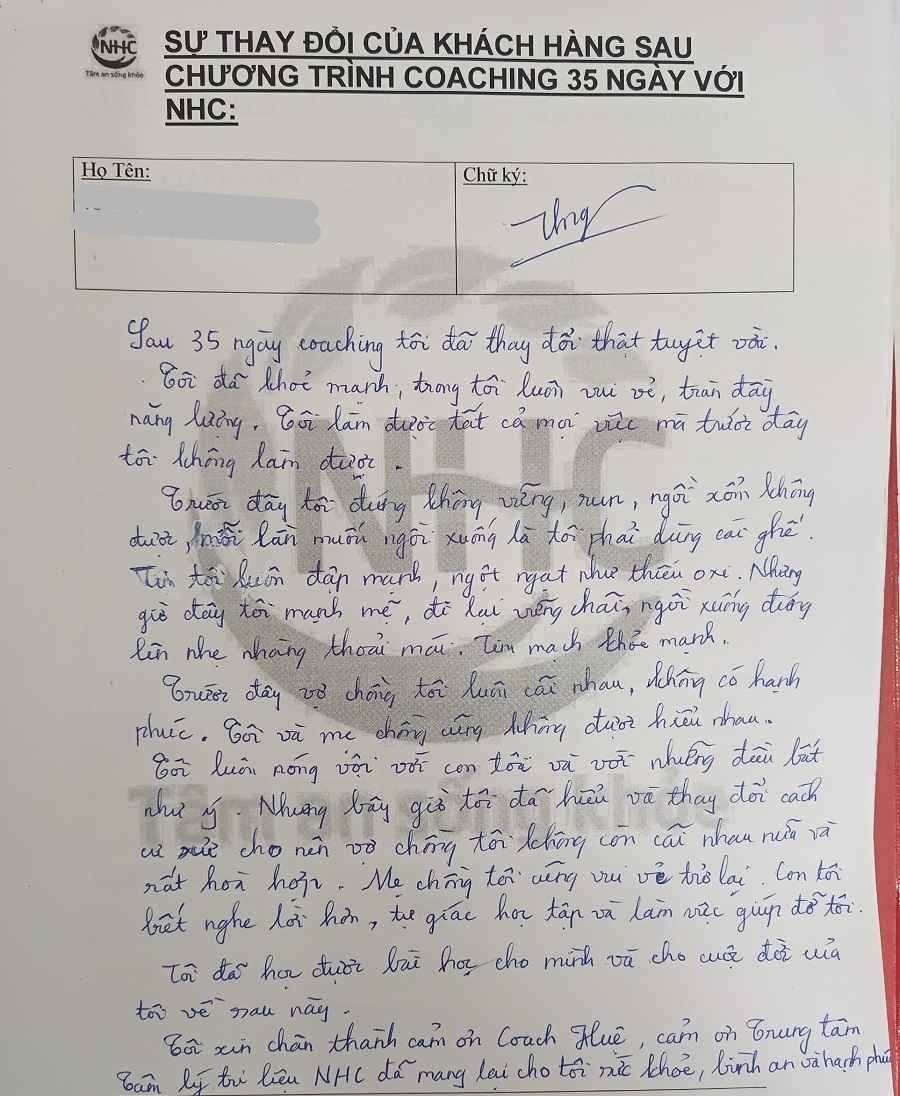 NHC
Tâm an sống khỏe
SỰ THAY ĐỔI CỦA KHÁCH HÀNG SAU
CHƯƠNG TRÌNH COACHING 35 NGÀY VỚI
NHC:
Họ Tên:
Chữ ký:
Sau 35 ngày coaching tôi đã thay đổi thật tuyệt vời.
Tôi đã khoẻ mạnh, trong tôi luôn vui vẻ, tràn đầy
năng lượng. Tôi làm được tất cả mọi việc mà trước đây
tôi không làm được.
Trước đây tôi đứng không vững, run, ngồi xổm không
được, mỗi lần muốn ngồi xuống là tôi phải dùng cái ghế.
Tim tôi luôn đập mạnh, ngột ngạt như thiếu oxi. Nhưng
giờ đây tôi mạnh mẽ, đi lại vững chãi, ngồi xuống đứng
lên nhẹ nhàng thoải mái. Tim mạch khỏe mạnh.
Trước đây vợ chồng tôi luôn cãi nhau, không có hạnh
phúc. Tôi và mẹ chồng cũng không được hiểu nhau.
Tôi luôn nóng vội với con tôi và với những điều bất
như ý. Nhưng bây giờ tôi đã hiểu và thay đổi cách
cư xử cho nên vợ chồng tôi không còn cãi nhau nữa và
rất hoà hợp. Mẹ chồng tôi cũng vui vẻ trở lại. Con tôi
biết nghe lời hơn, tự giác học tập và làm việc giúp đỡ tôi.
Tôi đã học được bài học cho mình và cho cuộc đời của
tôi về sau này.
Tôi xin chân thành cảm ơn Coach Huê, cảm ơn Trung tâm
Tâm lý trị liệu NHC đã mang lại cho tôi sức khỏe, bình an và hạnh phúc
NHC
Tâm an sống khỏe